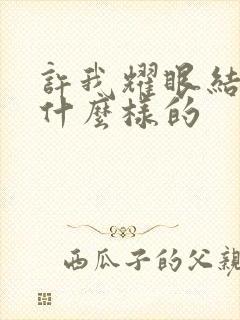 許我耀眼結
什麼樣的
西瓜子的父親